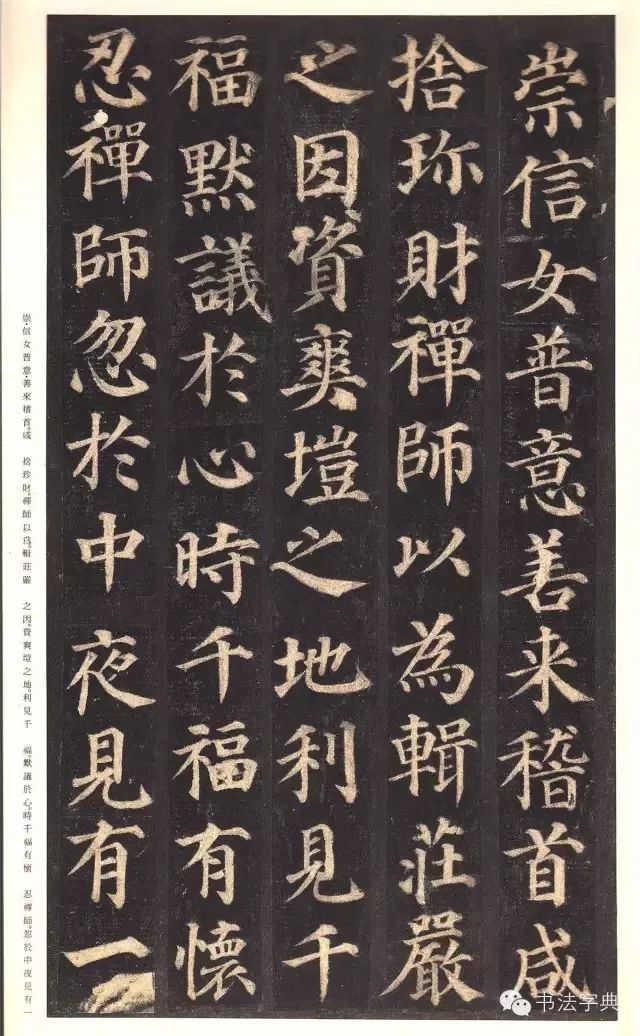 崇信女普意善来稽首咸
捨珎財禪師以為輯荘嚴
之因資爽塏之地利見千
福默議於心時千福有懷
忍禪師忽於中夜見有一
崇信女普意善來稽首咸 捨珍財禪師以爲輯莊嚴 之因資爽塏之地利見千 福默議於心時千福有懷 忍禪師忽於中夜見有一
书法字典